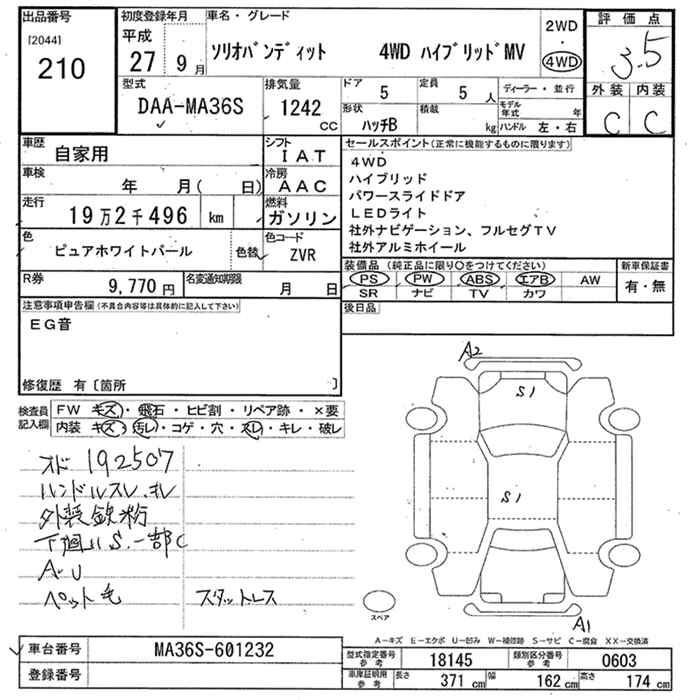 出品番号
[2044]
210
初度登録年月
平成
27 9月
車名・グレード
ソリオバンディット 4WD ハイブリッドMV
2WD
・
4WD
評価点
3.5
外装 内装
C C
型式
DAA-MA36S
排気量
1242
CC
ドア 5
定員 5 人
形状
ハッチB
積載
kg
ディーラー・並行
モデル年式 年
ハンドル 左・右
車歴
自家用
シフト
IAT
車検
年 月( 日)
冷房
AAC
走行
19万2千496 km
燃料
ガソリン
色
ピュアホワイトパール
色替
色コード
ZVR
R券
9,770円
名変通知期限
月 日
セールスポイント(正常に機能するものに限ります)
4WD
ハイブリッド
パワースライドドア
LEDライト
社外ナビゲーション、フルセグTV
社外アルミホイール
装備品(純正品に限り○をつけてください)
PS PW ABS エアB AW
SR ナビ TV カワ
新車保証書
有・無
後日品
注意事項申告欄(不具合内容等は具体的に記入して下さい)
EG音
修復歴 有〔箇所 〕
検査員
記入欄
FW キズ・飛石・ヒビ割・リペア跡・×要
内装 キズ・汚レ・コゲ・穴・スレ・キレ・破レ
オド 192507
ハンドルスレ、キレ
外装鉄粉
下廻りS.一部C
A・U
ペット毛 スタットレス
A2
S1
S1
スペア
A1
A―キズ E―エクボ U―凹み W―補修跡 S―サビ C―腐食 XX―交換済
車台番号
MA36S-601232
登録番号
型式指定番号
参考
18145
類別区分番号
参考
0603
車庫証明用
参考
長さ 371 cm
幅 162 cm
高さ 174 cm